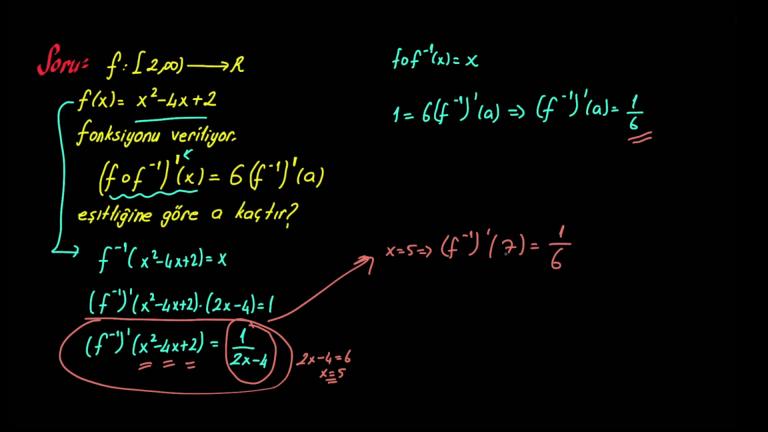 Soru: f: [2,∞) ⟶ R
f(x)= x²-4x+2
fonksiyonu veriliyor.
(fof⁻¹)'(x) = 6(f⁻¹)'(a)
eşitliğine göre a kaçtır?
f⁻¹(x²-4x+2)=x
(f⁻¹)'(x²-4x+2)·(2x-4)=1
(f⁻¹)'(x²-4x+2) = 1/(2x-4)
2x-4=6
x=5
fof⁻¹(x)= x
1 = 6(f⁻¹)'(a) ⇒ (f⁻¹)'(a)= 1/6
x=5 ⇒ (f⁻¹)'(7) = 1/6